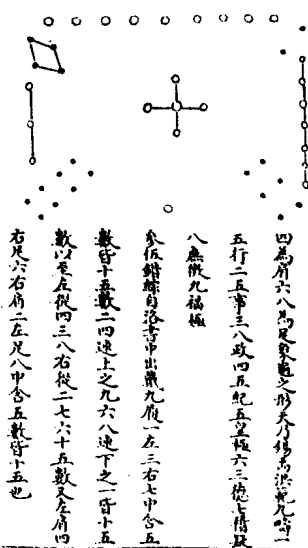 四為肩六八為足象龜之形天乃錫禹洪範九疇一
五行二五事三八政四五紀五皇極六三德七稽疑
八庶徵九福極
參伍錯綜自洛書中出戴九履一左三右七中含五
數皆十五數二四連上之九六八連下之一皆十五
數以至左從四三八右從二七六十五數又左肩四
右足六右肩二左足八中含五數皆十五也